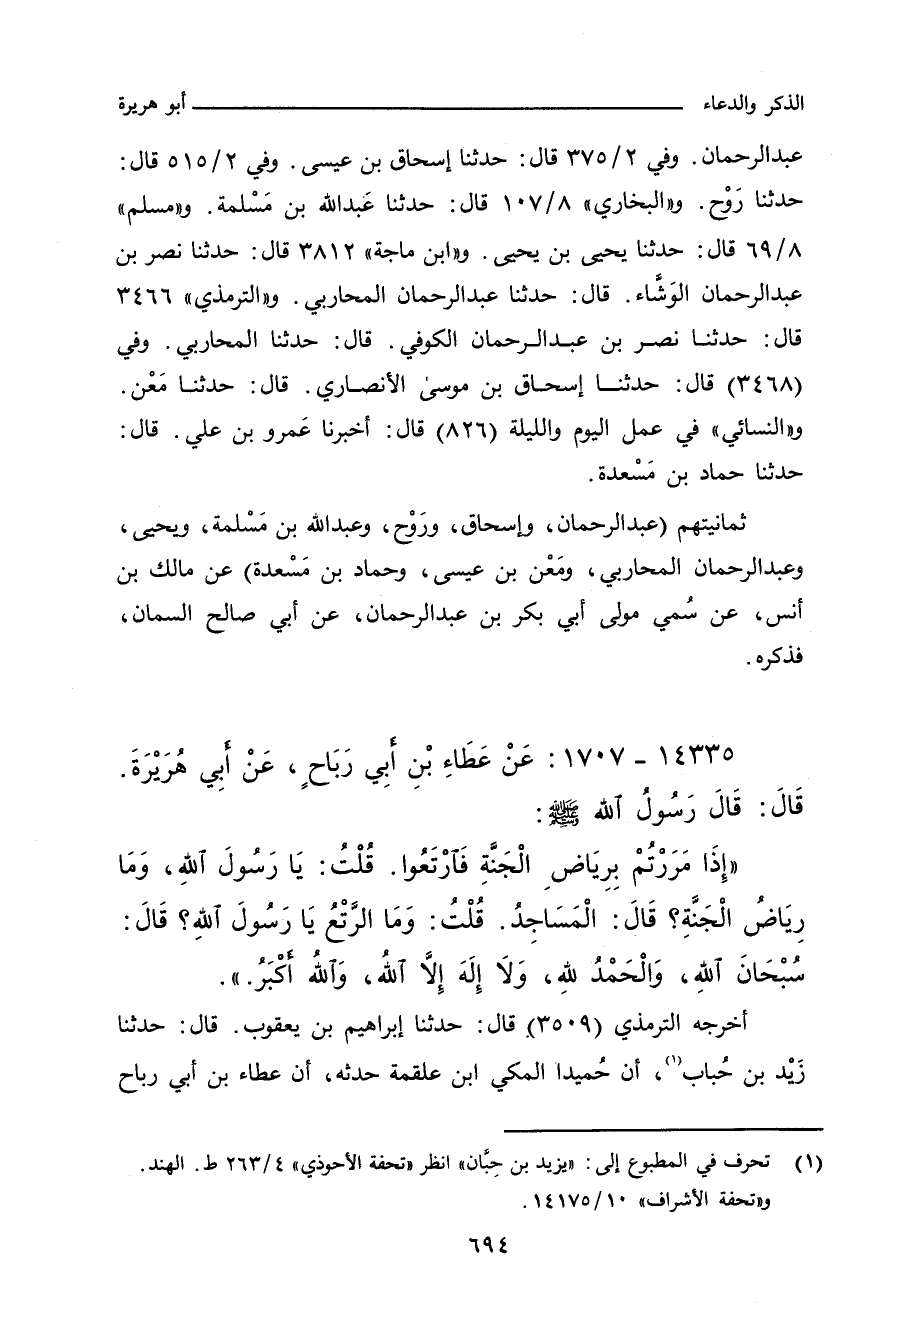 الذكر والدعاء ــــــــــــــــ أبو هريرة
عبدالرحمان. وفي ٣٧٥/٢ قال: حدثنا إسحاق بن عيسى. وفي ٥١٥/٢ قال:
حدثنا رَوْح. و«البخاري» ١٠٧/٨ قال: حدثنا عَبدالله بن مَسْلمة. و«مسلم»
٦٩/٨ قال: حدثنا يحيى بن يحيى. و«ابن ماجة» ٣٨١٢ قال: حدثنا نصر بن
عبدالرحمان الوَشَّاء. قال: حدثنا عبدالرحمان المحاربي. و«الترمذي» ٣٤٦٦
قال: حدثنا نصر بن عبدالرحمان الكوفي. قال: حدثنا المحاربي. وفي
(٣٤٦٨) قال: حدثنا إسحاق بن موسىٰ الأنصاري. قال: حدثنا مَعْن.
و«النسائي» في عمل اليوم والليلة (٨٢٦) قال: أخبرنا عَمرو بن علي. قال:
حدثنا حماد بن مَسْعدة.
ثمانيتهم (عبدالرحمان، وإسحاق، ورَوْح، وعبدالله بن مَسْلمة، ويحيى،
وعبدالرحمان المحاربي، ومَعْن بن عيسى، وحماد بن مَسْعدة) عن مالك بن
أنس، عن سُمي مولى أبي بكر بن عبدالرحمان، عن أبي صالح السمان،
فذكره.
١٤٣٣٥ - ١٧٠٧: عَنْ عَطَاءِ بْنِ أَبِي رَبَاحٍ، عَنْ أَبِي هُرَيْرَةَ.
قَالَ: قَالَ رَسُولُ ٱلله ﷺ:
«إِذَا مَرَرْتُمْ بِرِيَاضِ الْجَنَّةِ فَٱرْتَعُوا. قُلْتُ: يَا رَسُولَ ٱللهِ، وَمَا
رِيَاضُ الْجَنَّةِ؟ قَالَ: الْمَسَاجِدُ. قُلْتُ: وَمَا الرَّتْعُ يَا رَسُولَ ٱللهِ؟ قَالَ:
سُبْحَانَ ٱللهِ، وَالْحَمْدُ للهِ، وَلَا إِلَهَ إِلَّا ٱللهُ، وَٱللهُ أَكْبَرُ.».
أخرجه الترمذي (٣٥٠٩) قال: حدثنا إبراهيم بن يعقوب. قال: حدثنا
زَيْد بن حُباب(١)، أن حُميدا المكي ابن علقمة حدثه، أن عطاء بن أبي رباح
(١) تحرف في المطبوع إلى: «يزيد بن حِبَّان» انظر «تحفة الأحوذي» ٢٦٣/٤ ط. الهند.
و«تحفة الأشراف» ١٤١٧٥/١٠.
٦٩٤